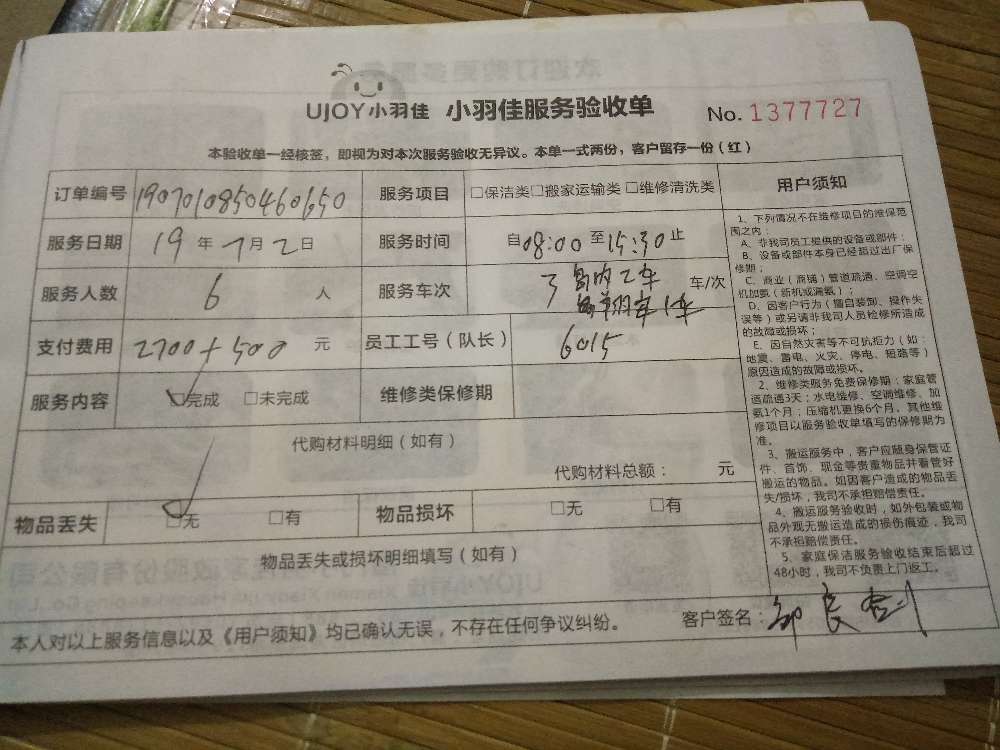 UJOY小羽佳 小羽佳服务验收单 No. 1377727
本验收单一经核签，即视为对本次服务验收无异议。本单一式两份，客户留存一份（红）
订单编号 190701085046065​0 服务项目 □保洁类□搬家运输类□维修清洗类
服务日期 19年7月2日 服务时间 自08:00至15:30止
服务人数 6 人 服务车次 3 岛内2车 车/次
翔车1车
支付费用 2700+500 元 员工工号（队长） 6015
服务内容 □完成 □未完成 维修类保修期
代购材料明细（如有）
代购材料总额： 元
物品丢失 □无 □有 物品损坏 □无 □有
物品丢失或损坏明细填写（如有）
本人对以上服务信息以及《用户须知》均已确认无误，不存在任何争议纠纷。 客户签名：
用户须知
1、下列情况不在维修项目的维保范
围之内：
A、非我司员工提供的设备或部件；
B、设备或部件本身已经超过出厂保
修期；
C、商业（商铺）管道疏通、空调空
机加氨（新机或漏氨）；
D、因客户行为（擅自装卸、操作失
误等）或另请非我司人员检修所造成
的故障或损坏；
E、因自然灾害等不可抗拒力（如：
地震、雷电、火灾、停电、短路等）
原因造成的故障或损坏。
2、维修类服务免费保修期：家庭管
道疏通3天；水电维修、空调维修、加
氨1个月；压缩机更换6个月。其他维
修项目以服务验收单填写的保修期为
准。
3、搬运服务中，客户应随身保管证
件、首饰、现金等贵重物品并看管好
搬运的物品。如因客户造成的物品丢
失/损坏，我司不承担赔偿责任。
4、搬运服务验收时，如外包装或物
品外观无搬运造成的损伤痕迹，我司
不承担赔偿责任。
5、家庭保洁服务验收结束后超过
48小时，我司不负责上门返工。